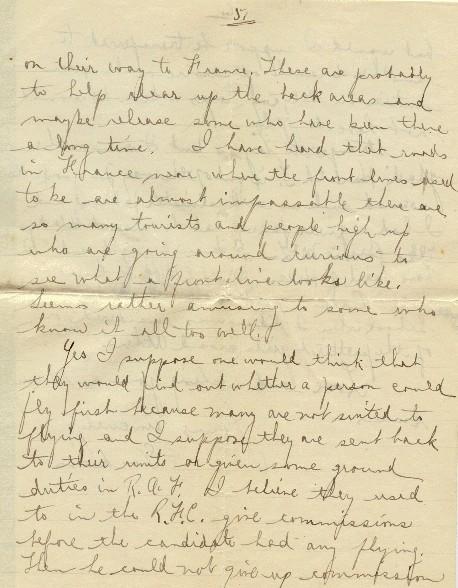 5.
on their way to France. These are probably
to help clear up the back areas and
maybe release some who have been there
a long time. I have heard that roads
in France near where the front lines used
to be are almost impassable there are
so many tourists and people high up
who are going around curious to
see what a front line looks like.
Seems rather amusing to some who
know it all too well.
Yes I suppose one would think that
they would find out whether a person could
fly first because many are not suited to
flying and I suppose they are sent back
to their units or given some ground
duties in R.A.F. I believe they used
to in the R.F.C. give commissions
before the candidate had any flying.
Then he could not give up commission